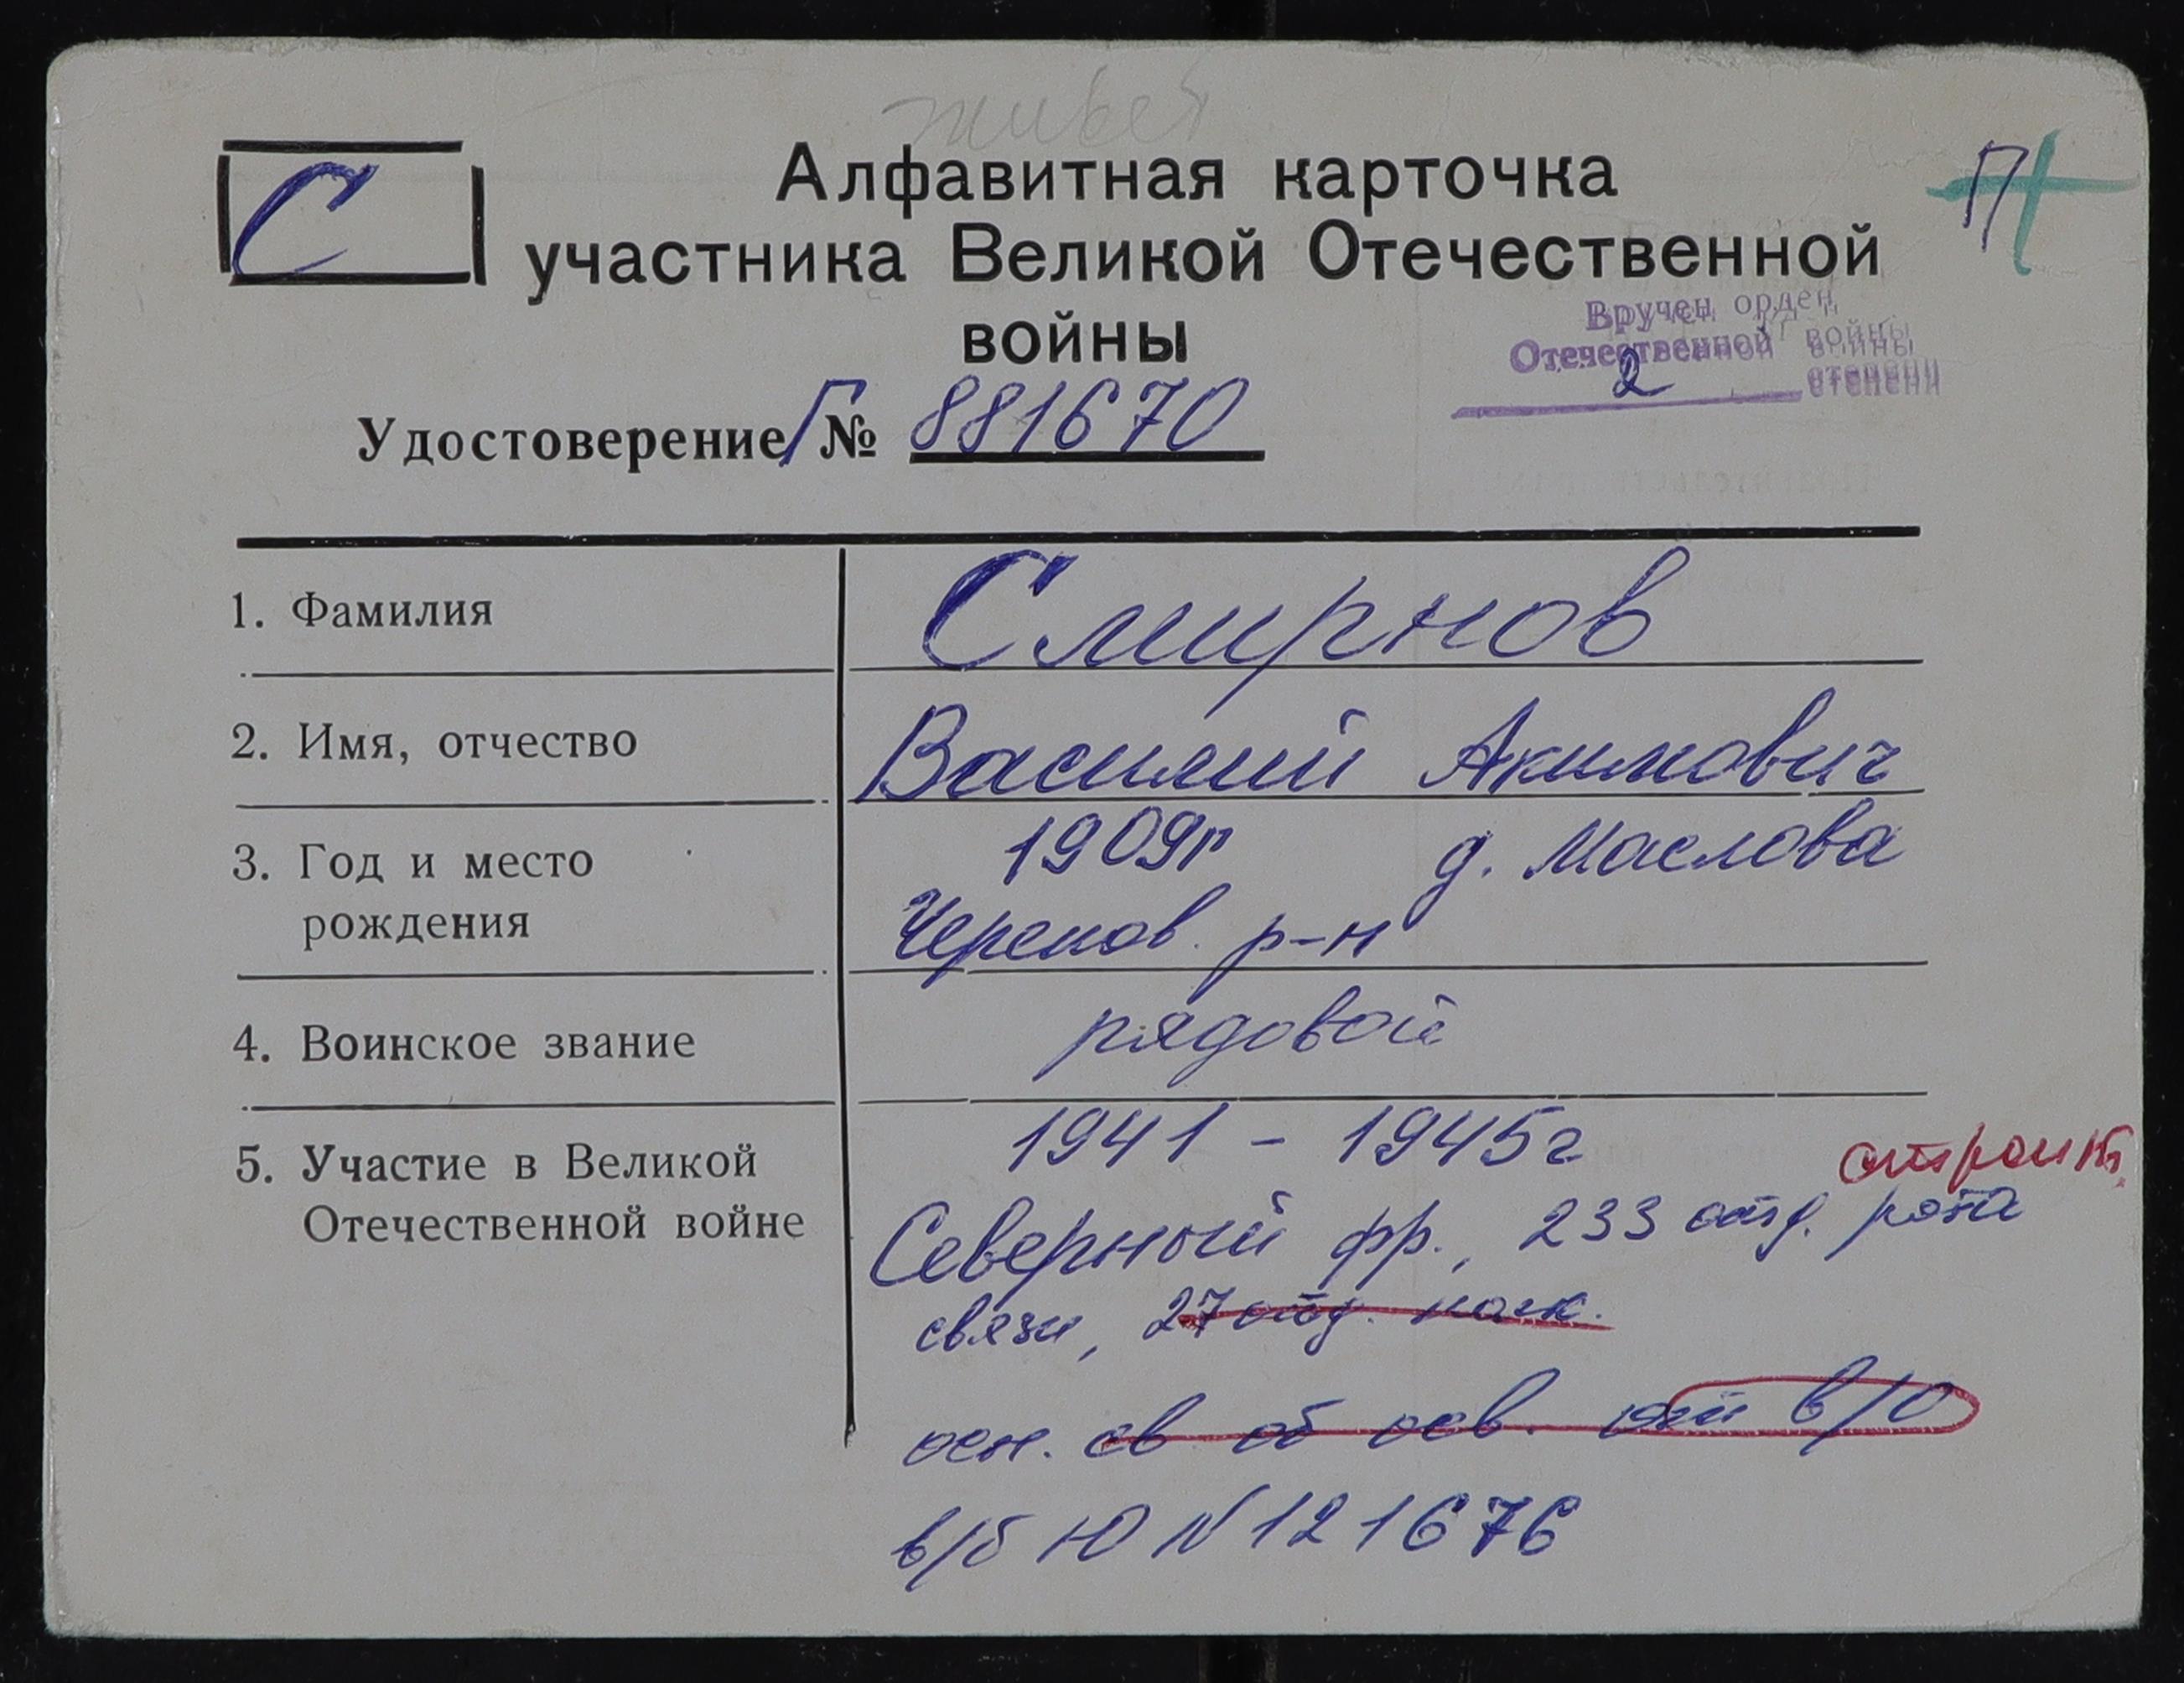 живет
С
Алфавитная карточка
участника Великой Отечественной
войны
П
Вручен орден
Отечественной войны
2 степени
Удостоверение Г № 881670
1. Фамилия Смирнов
2. Имя, отчество Василий Акимович
3. Год и место рождения 1909г д. Маслова
Черепов. р-н
4. Воинское звание рядовой
5. Участие в Великой Отечественной войне 1941 - 1945г
строит.
Северный фр., 233 отд. рота
связи, 27 отд.
осн. св об осв. в/о
в/б Ю N 121676